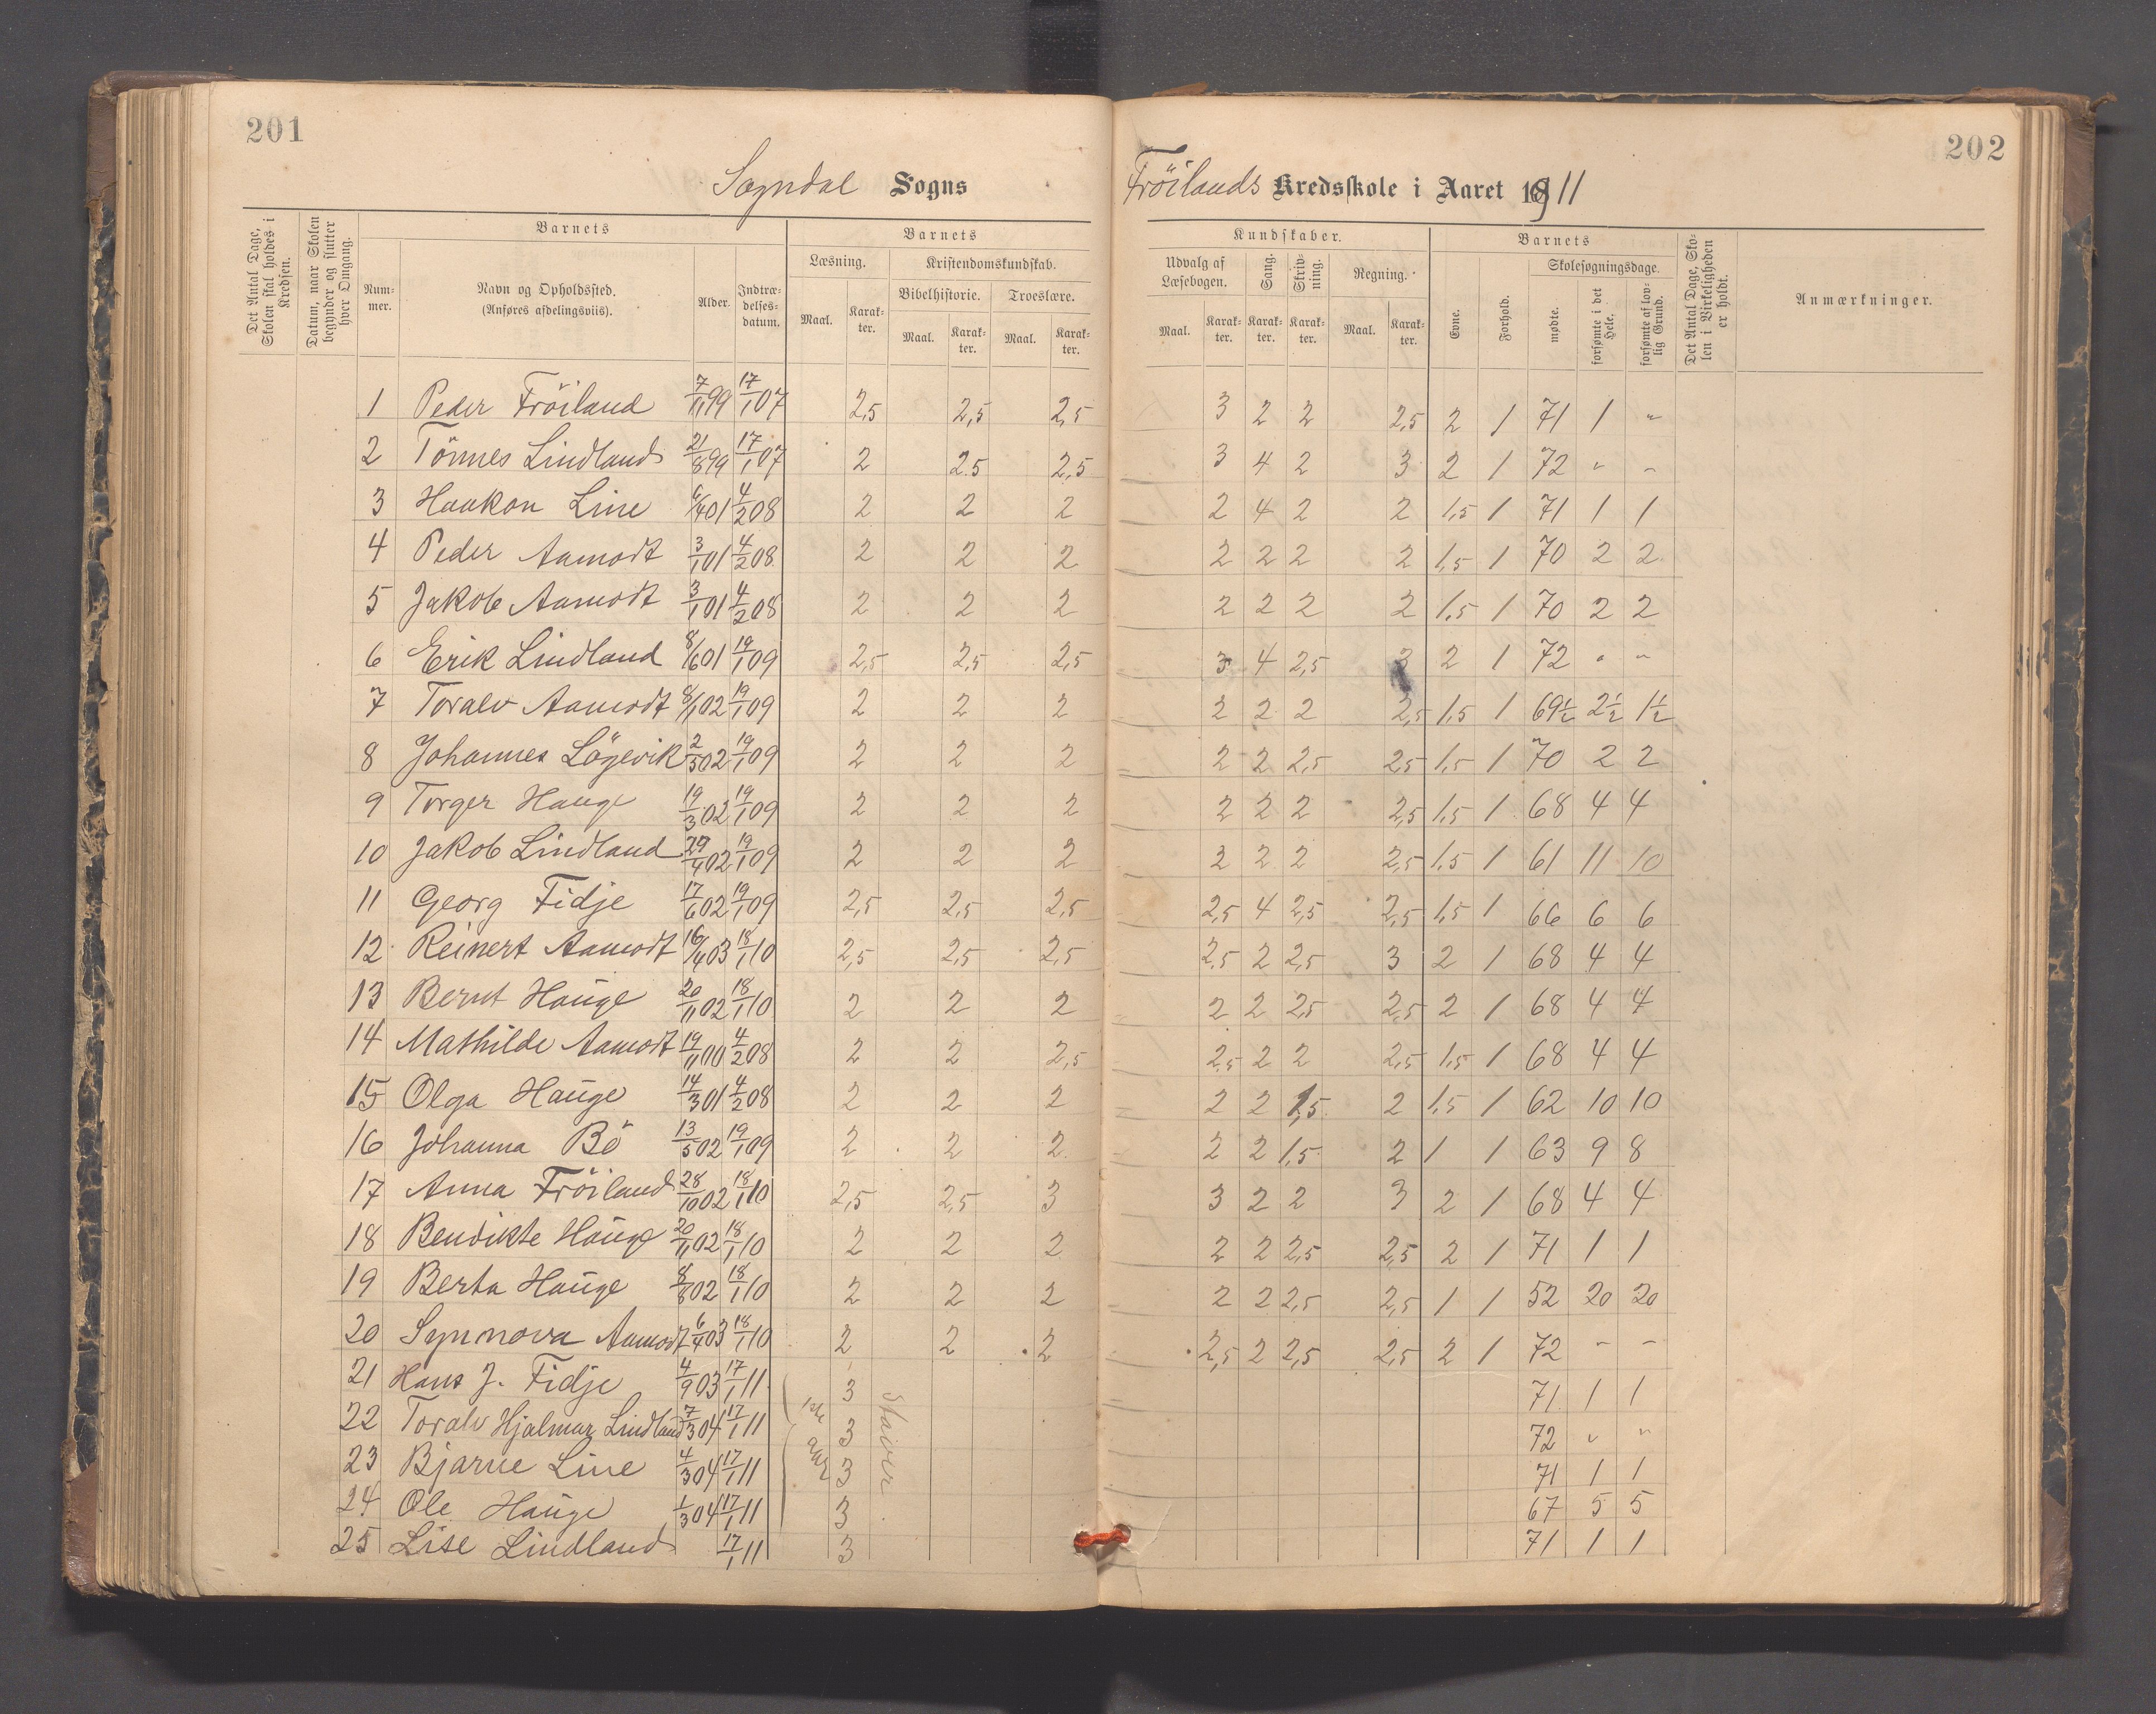 201
202
Sogndal Sogns
Fröilands Kredsskole i Aaret 1911
Det Antal Dage, Skolen skal holdes i Kredsen.
Datum, naar Skolen begynder og slutter hver Omgang.
Barnets
Barnets
Kundskaber.
Barnets
Det Antal Dage, Skolen i Virkeligheden er holdt.
Anmærkninger.
Nummer.
Navn og Opholdssted.
(Anføres afdelingsviis).
Alder.
Indtrædelsesdatum.
Læsning.
Kristendomskundskab.
Bibelhistorie.
Troeslære.
Udvalg af Læsebogen.
Sang.
Skrivning.
Regning.
Evne.
Forhold.
Skolesøgningsdage.
mødte.
forsømte i det Hele.
forsømte af lovlig Grund.
Maal. Karakter. Maal. Karakter. Maal. Karakter. Maal. Karakter. Karakter. Karakter. Maal. Karakter.
1 Peder Fröiland 7/11 99 17/1 07 2,5 2,5 2,5 3 2 2 2,5 2 1 71 1 "
2 Tönnes Lindland 21/8 99 17/1 07 2 2.5 2,5 3 4 2 3 2 1 72 " "
3 Haakon Line 6/4 01 4/2 08 2 2 2 2 4 2 2 1,5 1 71 1 1
4 Peder Aamodt 3/1 01 4/2 08 2 2 2 2 2 2 2 1,5 1 70 2 2
5 Jakob Aamodt 3/1 01 4/2 08 2 2 2 2 2 2 2 1,5 1 70 2 2
6 Erik Lindland 8/6 01 19/1 09 2,5 2,5 2,5 3 4 2,5 3 2 1 72 " "
7 Toralv Aamodt 8/1 02 19/1 09 2 2 2 2 2 2 2,5 1,5 1 69½ 2½ 1½
8 Johannes Lögevik 2/5 02 19/1 09 2 2 2 2 2 2,5 2,5 1,5 1 70 2 2
9 Torger Hauge 19/3 02 19/1 09 2 2 2 2 2 2 2,5 1,5 1 68 4 4
10 Jakob Lindland 29/4 02 19/1 09 2 2 2 2 2 2 2,5 1,5 1 61 11 10
11 Georg Fidje 17/6 02 19/1 09 2,5 2,5 2,5 2,5 4 2,5 2,5 1,5 1 66 6 6
12 Reinert Aamodt 16/4 03 18/1 10 2,5 2,5 2,5 2,5 2 2,5 3 2 1 68 4 4
13 Bernt Hauge 20/11 02 18/1 10 2 2 2 2 2 2,5 2,5 2 1 68 4 4
14 Mathilde Aamodt 19/11 00 4/2 08 2 2 2,5 2,5 2 2 2,5 1,5 1 68 4 4
15 Olga Hauge 14/3 01 4/2 08 2 2 2 2 2 1,5 2 1,5 1 62 10 10
16 Johanna Bö 13/5 02 19/1 09 2 2 2 2 2 1,5 2 1 1 63 9 8
17 Anna Fröiland 28/10 02 18/1 10 2,5 2,5 3 3 2 2 3 2 1 68 4 4
18 Bendikte Hauge 20/11 02 18/1 10 2 2 2 2 2 2,5 2,5 2 1 71 1 1
19 Berta Hauge 8/8 02 18/1 10 2 2 2 2 2 2,5 2,5 1 1 52 20 20
20 Synnova Aamodt 6/4 03 18/1 10 2 2 2 2,5 2 2,5 2,5 2 1 72 - -
21 Hans J. Fidje 4/9 03 17/1 11 3 71 1 1
22 Toralv Hjalmar Lindland 7/3 04 17/1 11 3 72 " "
23 Bjarne Line 4/3 04 17/1 11 3 71 1 1
24 Ole Hauge 1/3 04 17/1 11 3 67 5 5
25 Lise Lindland 17/1 11 3 71 1 1
1ste aar
Staver